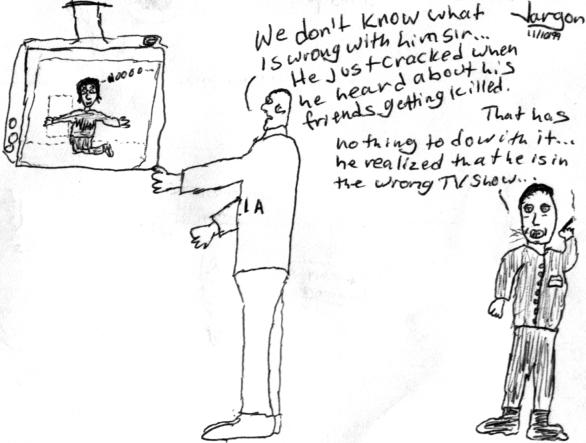 We don't know what
is wrong with him sir...
He Just cracked when
he heard about his
friends getting killed.
Jargon
11/10/99
That has
nothing to do with it...
he realized that he is in
the wrong TV Show...
-NOOOO--
IA